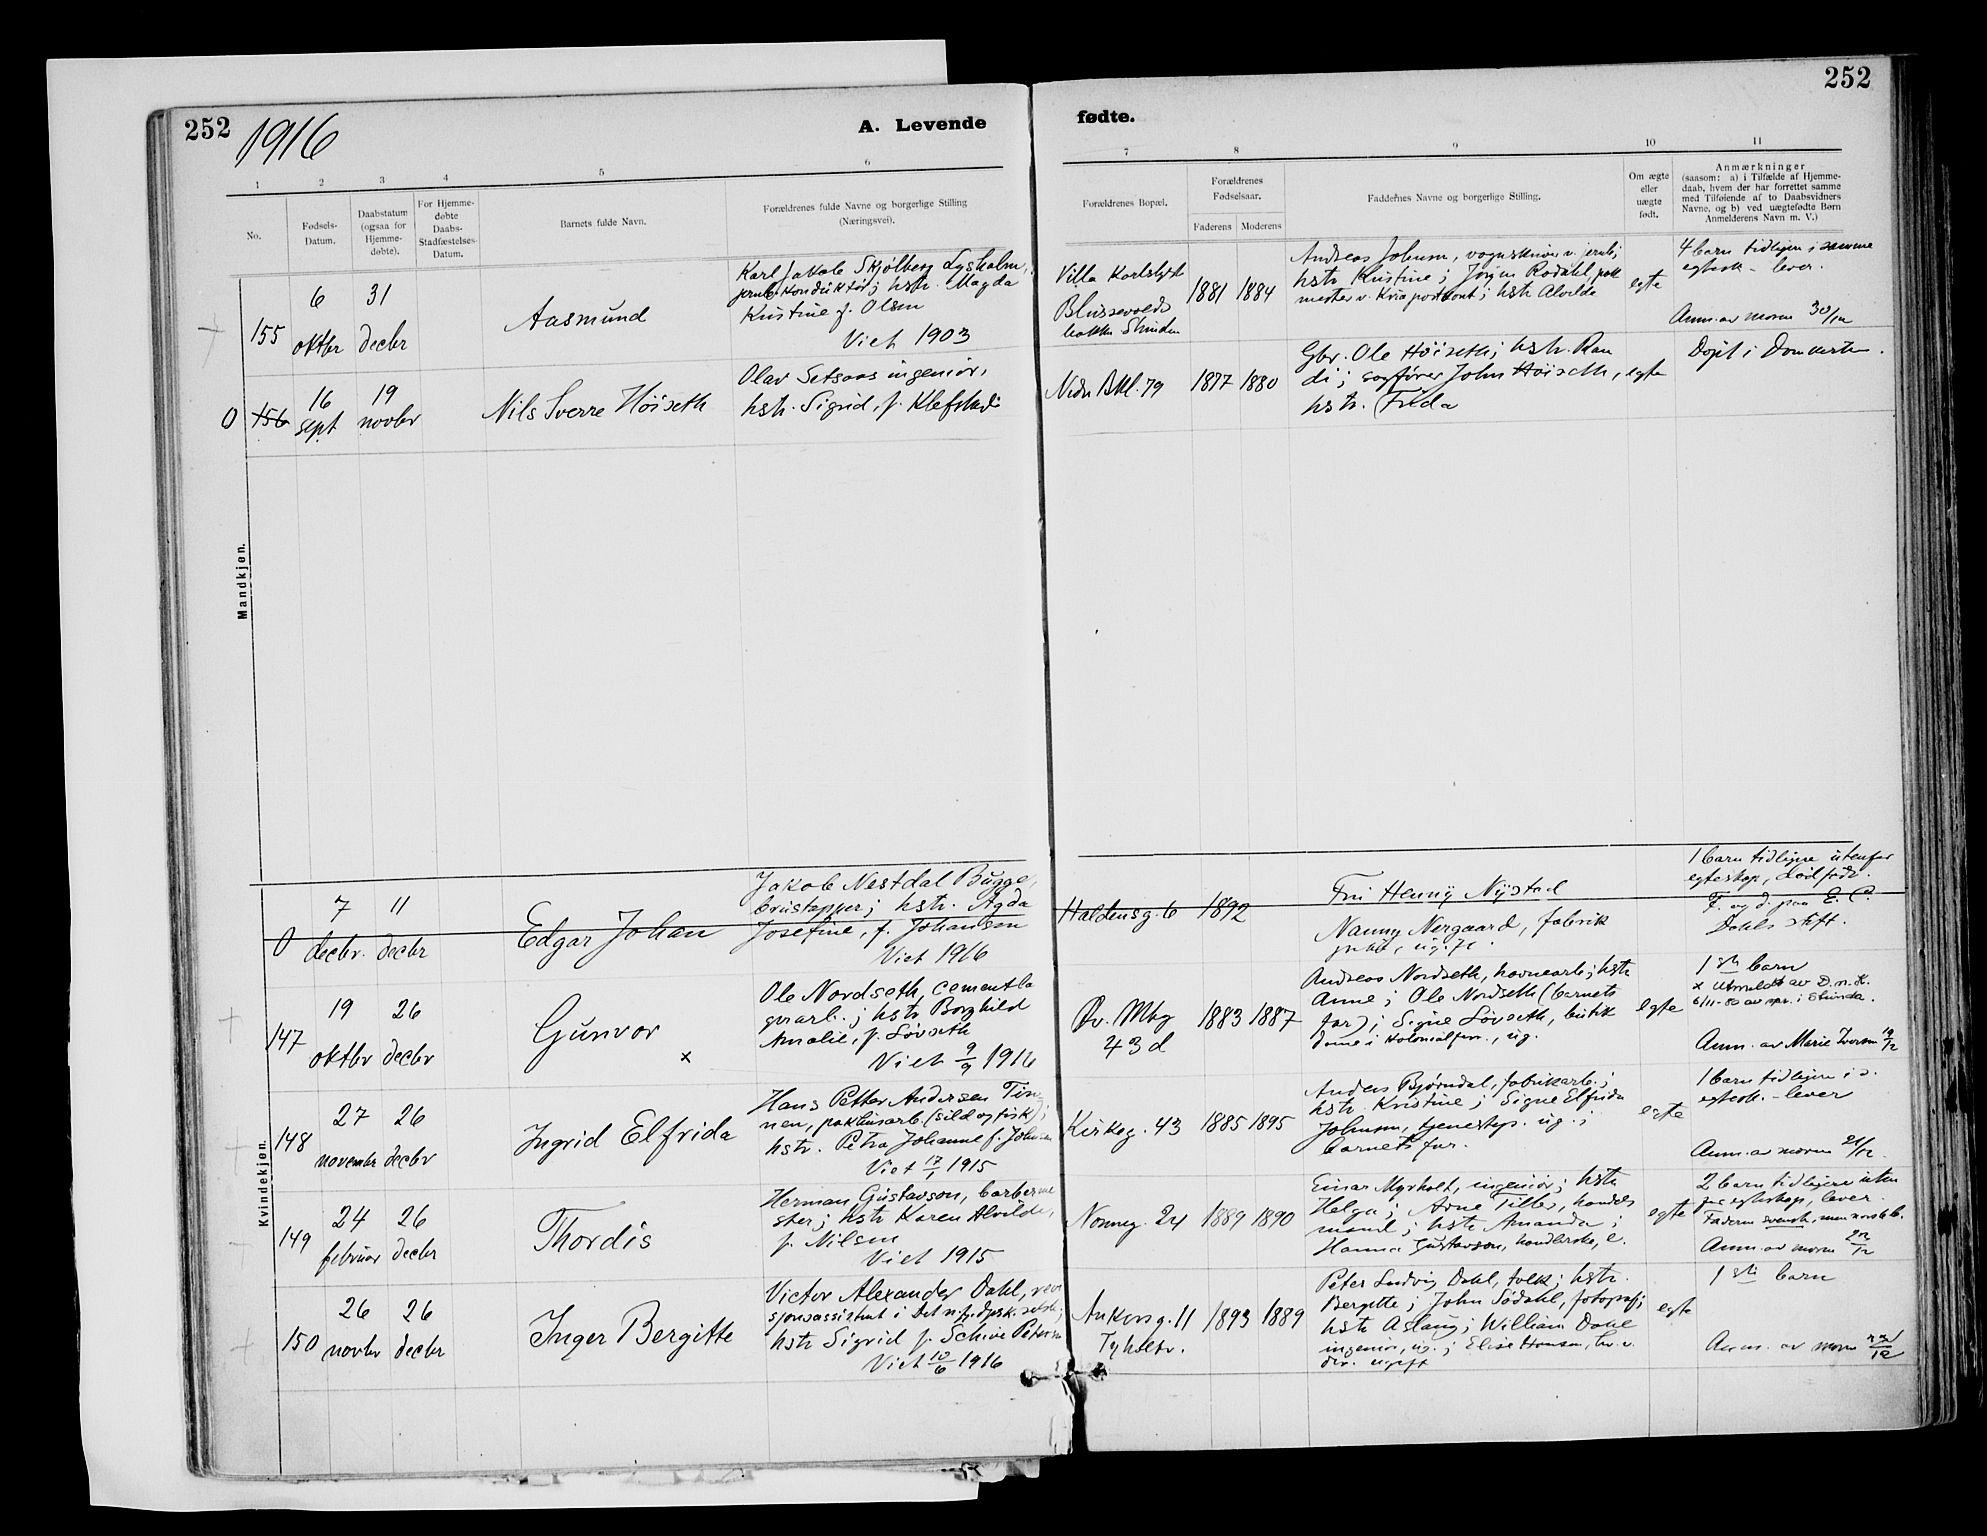 252
1916
A. Levende
fødte.
252
1 2 3 4 5 6 7 8 9 10 11
No.
Fødsels-
Datum.
Daabsdatum
(ogsaa for
Hjemme-
døbte).
For Hjemme-
døbte
Daabs-
Stadfæstelses-
Datum.
Barnets fulde Navn.
Forældrenes fulde Navne og borgerlige Stilling
(Næringsvei).
Forældrenes Bopæl.
Forældrenes
Fødselsaar.
Faderens Moderens
Faddernes Navne og borgerlige Stilling.
Om ægte
eller
uægte
født.
Anmærkninger
(saasom: a) i Tilfælde af Hjemme-
daab, hvem der har forrettet samme
med Tilføiende af to Daabsvidners
Navne, og b) ved uægtefødte Børn
Anmelderens Navn m. V.)
Mandkjøn.
155
6
oktbr
31
decbr
Aasmund
Karl Jakob Skjølberg Lysholm,
jernb. konduktør; hstr. Magda
Kristine f. Olsen
Viet 1903
Villa Karlslyst
Blussevolds
bakken Strinden
1881 1884
Andreas Johnsen, vognskriver v. jernb;
hstr. Kristine; Jørgen Rodahl, pak
mester v. postkont; hstr Alvilde
egte
4 barn tidligere i samme
egtesk - lever.
Anm. av moren 30/12
0 156
16
sept
19
novbr
Nils Sverre Höiseth
Olav Setsaas ingeniør,
hstr. Sigrid, f. Klefstad
Nedr Bkl. 79
1877 1880
Gbr. Ole Höiseth; hstr. Ran
di; sagfører John Höiseth,
hstr. Frida
egte
Døpt i Domkirken.
Kvindekjøn.
0
7
decbr.
11
decbr
Edgar Johan
Jakob Nestdal Bugge,
brustapper; hstr. Agda
Josefine, f. Johansen
Viet 1916
Haldensg. 6
1892
Fru Henny Nystad
Nanny Nergaard, fabrik
1 barn tidligere utenfor
egteskap, dödfødt.
F. og d. paa E. C.
Dahls stift.
147
19
oktbr
26
decbr
Gunvor
x
Ole Nordseth, cementla
gerarb.; hstr. Borghild
Amalie, f. Løvseth
Viet 9/9 1916
Øv. Mbg
43 d
1883 1887
Andreas Nordseth, havnearb; hstr
Anne; Ole Nordseth (barnets
far); Signe Løvseth, butik
dame i kolonialforr., ug.
egte
1ste barn
x Utmeldt av D. n. K.
6/11-50 av spr. i Strinda.
Anm. av Marie Iversen 19/12
148
27
novembr
26
decbr
Ingrid Elfrida
Hans Petter Andersen Tin-
nen, pakhusarb. (sild og fisk);
hstr. Petra Johanne f. Johnsen
Viet 17/1 1915
Kirkeg. 43
1885 1895
Anders Bjørndal, fabrikarb.;
hstr. Kristine; Signe Elfrida
Johnsen, tjenestep. ug.;
barnets far.
egte
1 barn tidligere i s.
egtesk. - lever
Anm. av moren 21/12.
149
24
februar
26
decbr
Thordis
Herman Gustavson, barberme
ster; hstr Karen Alvilde,
f. Nilsen
Viet 1915
Nonneg. 24
1889 1890
Einar Myrholt, ingeniør; hstr
Helga; Arne Tiller, handels
mand; hstr. Amanda;
Hanna Gustavson, handlerske, e.
egte
2 barn tidligere uten
for egteskap, lever.
Faderen svensk, men norsk b.
Anm. av moren 22/12
150
26
novbr
26
decbr
Inger Bergitte
Victor Alexander Dahl, revi
sjonsassistent i Det
hstr Sigrid f. Schive Petersen
Viet 10/6 1916
Ankersg. 11
Tyholtv.
1893 1889
Peter Ludvig Dahl, tolk; hstr.
Bergitte; John Sødahl, fotograf;
hstr Aslaug; William Dahl
ingeniør, ug.; Elise Hansen, bu. v.
div. ugift
egte
1ste barn
Anm. av moren 22/12